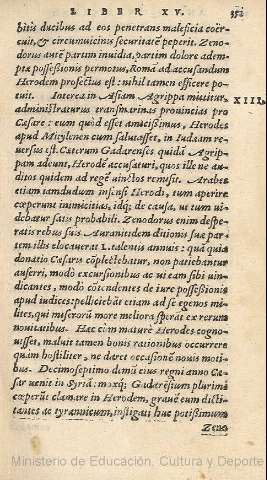 LIBER XV. 352
bitis ducibus ad eos penetrans maleficia coër-
cuit, & circumuicinis securitatē peperit. Zeno-
dorus autē partim inuidia, partim dolore adem-
ptæ possessionis permotus, Romā ad accusandum
Herodem profectus est: nihil tamen efficere po-
tuit. Interea in Asiam Agrippa mittitur,
administraturus transmarinas prouincias pro
Cæsare: eum quòd esset amicißimus, Herodes
apud Mitylenen cum salutasset, in Iudæam re-
uersus est. Cæterum Gadarenses quidā Agrip-
pam adeunt, Herodē accusaturi, quos ille ne au-
ditos quidem ad regē uinctos remisit. Arabes
etiam iamdudum infensi Herodi, tum aperire
cœperunt inimicitias, idq; de causa, ut tum ui-
debatur satis probabili. Zenodorus enim despe-
ratis rebus suis Auranitidem ditionis suæ par-
tem illis elocauerat L. talentis annuis: quā quia
donatio Cæsaris cōplectebatur, non patiebantur
auferri, modò excursionibus ac ui eam sibi uin-
dicantes, modò cōtendentes de iure possessionis
apud iudices: pelliciebāt etiam ad se egenos mi-
lites, qui miserorū more meliora sperāt ex rerum
nouitatibus. Hæc cùm maturè Herodes cogno-
uisset, maluit tamen bonis rationibus occurrere
quàm hostiliter, ne daret occasionē nouis moti-
bus. Decimoseptimo demū eius regni anno Cæ-
sar uenit in Syriā: moxq; Gadarēsium plurimi
cœperūt clamare in Herodem, grauē eum dicti-
tantes ac tyrannicum, instigati huc potißimum
Zeno
XIII.
Ministerio de Educación, Cultura y Deporte